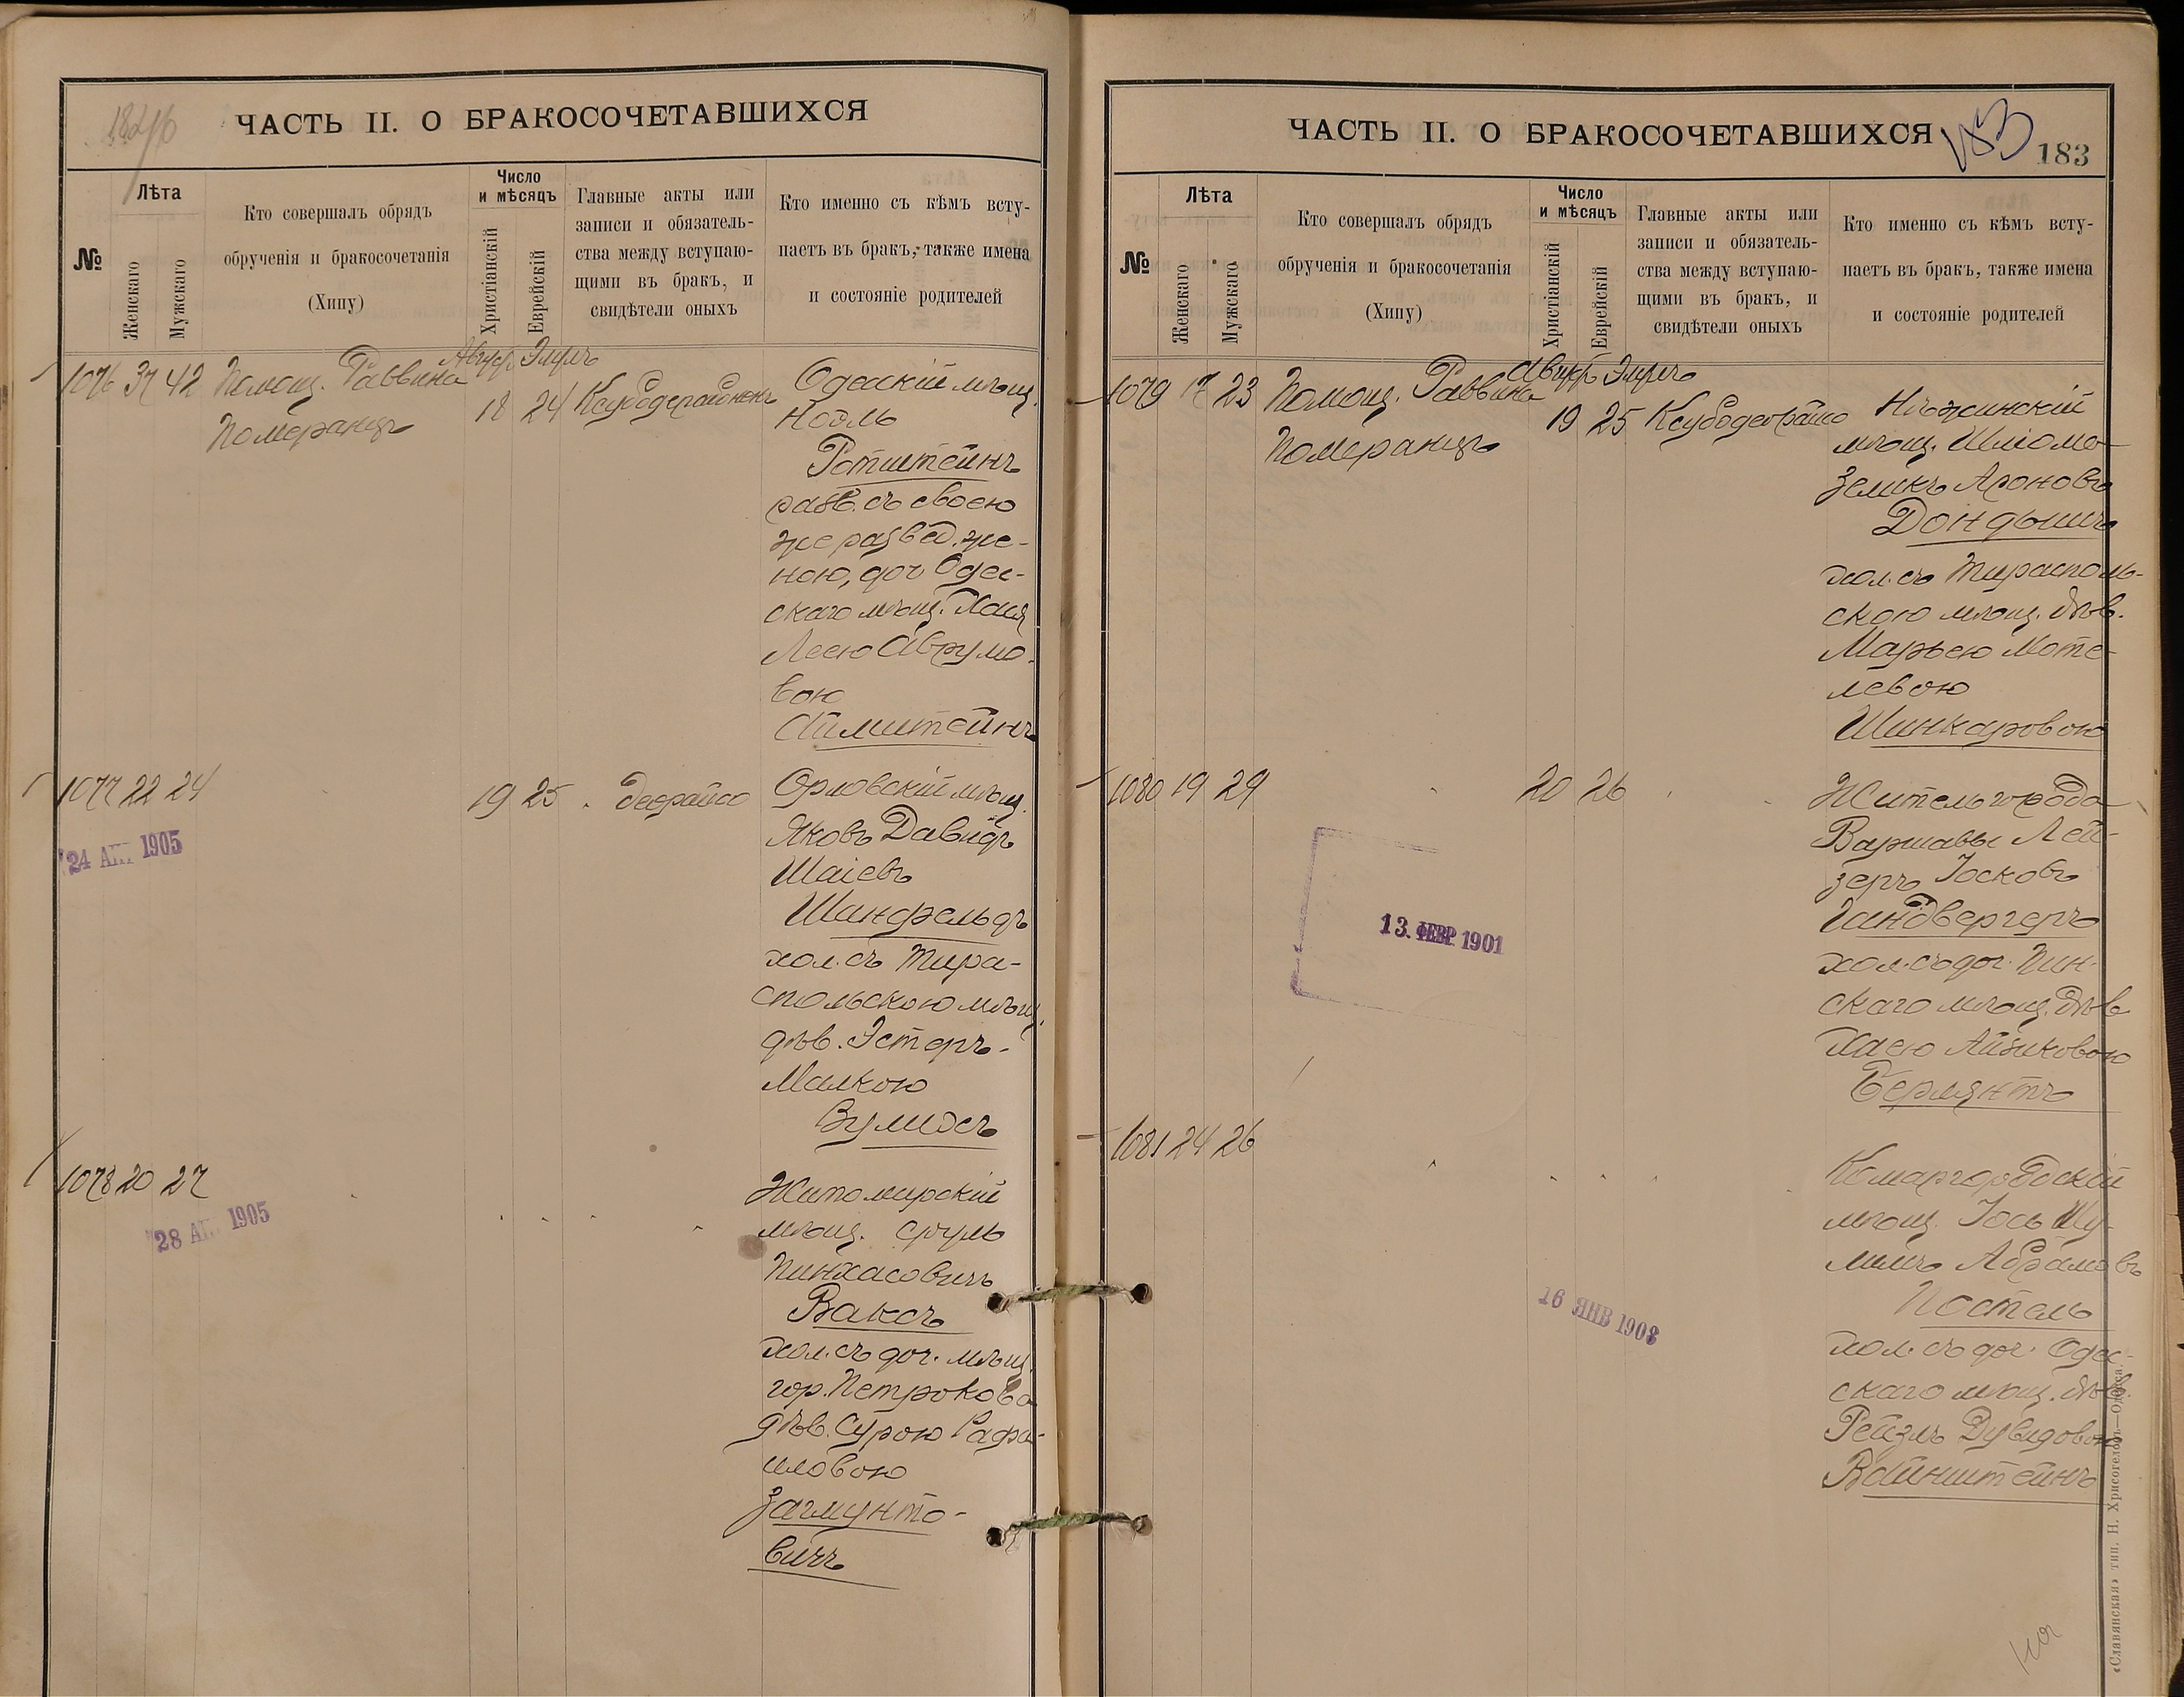 ЧАСТЬ II. О БРАКОСОЧЕТАВШИХСЯ
№
Лѣта
Женскаго
Мужскаго
Кто совершалъ обрядъ
обрученія и бракосочетанія
(Хипу)
Число
и мѣсяцъ
Христіанскій
Еврейскій
Главные акты или
записи и обязатель-
ства между вступаю-
щими въ бракъ, и
свидѣтели оныхъ
Кто именно съ кѣмъ всту-
паетъ въ бракъ, также имена
и состояніе родителей
1076 37 42 Помощ. Раввина
Померанцъ
Элулъ
18 24
Одесскій мѣщ.
Ротштейнъ
разв. съ своею
же развед. же-
ною, доч Одес-
скаго мѣщ. Хая
Леею Аврумо-
вою
1077 22 24
19 25
Орловскій мѣщ.
Яковъ Давидъ
Шаіевъ
Шанфельдъ
хол. съ Тира-
спольскою мѣщ.
дѣв. Эстеръ-
Малкою
24 1905
1078 20 27
Житомирскій
мѣщ. Сруль
Пинхасовичъ
Ваксъ
хол. съ доч. мѣщ.
гор. Петрокова
дѣв. Сурою Рафа-
иловою
Загмунто-
вичъ
28 1905
ЧАСТЬ II. О БРАКОСОЧЕТАВШИХСЯ
183
183
№
Лѣта
Женскаго
Мужскаго
Кто совершалъ обрядъ
обрученія и бракосочетанія
(Хипу)
Число
и мѣсяцъ
Христіанскій
Еврейскій
Главные акты или
записи и обязатель-
ства между вступаю-
щими въ бракъ, и
свидѣтели оныхъ
Кто именно съ кѣмъ всту-
паетъ въ бракъ, также имена
и состояніе родителей
1079 23 Помощ. Раввина
Померанцъ
Элулъ
19 25
Нѣжинскій
мѣщ. Шліома-
Зеликъ Ароновъ
Дондышъ
хол. съ Тирасполь-
скою мѣщ. дѣв.
Марьею Моте-
левою
Шинкаровою
1080 19 29
20 26
Житель города
Варшавы Лей-
зеръ Іосковъ
Гандвергеръ
хол. съ доч. Пин-
скаго мѣщ. дѣв
Хаею Айзиковою
Берлянтъ
13. ФЕВР. 1901
1081 24 26
Комаргородскій
мѣщ. Іось Шу-
лимъ Абрамовъ
Постель
хол. съ доч. Одес-
скаго мѣщ. дѣв.
Рейзлъ Дувидовою
Вайнштейнъ
16 ЯНВ 1908
«Славянская» тип. Н. Хрисогелосъ.—Одесса.